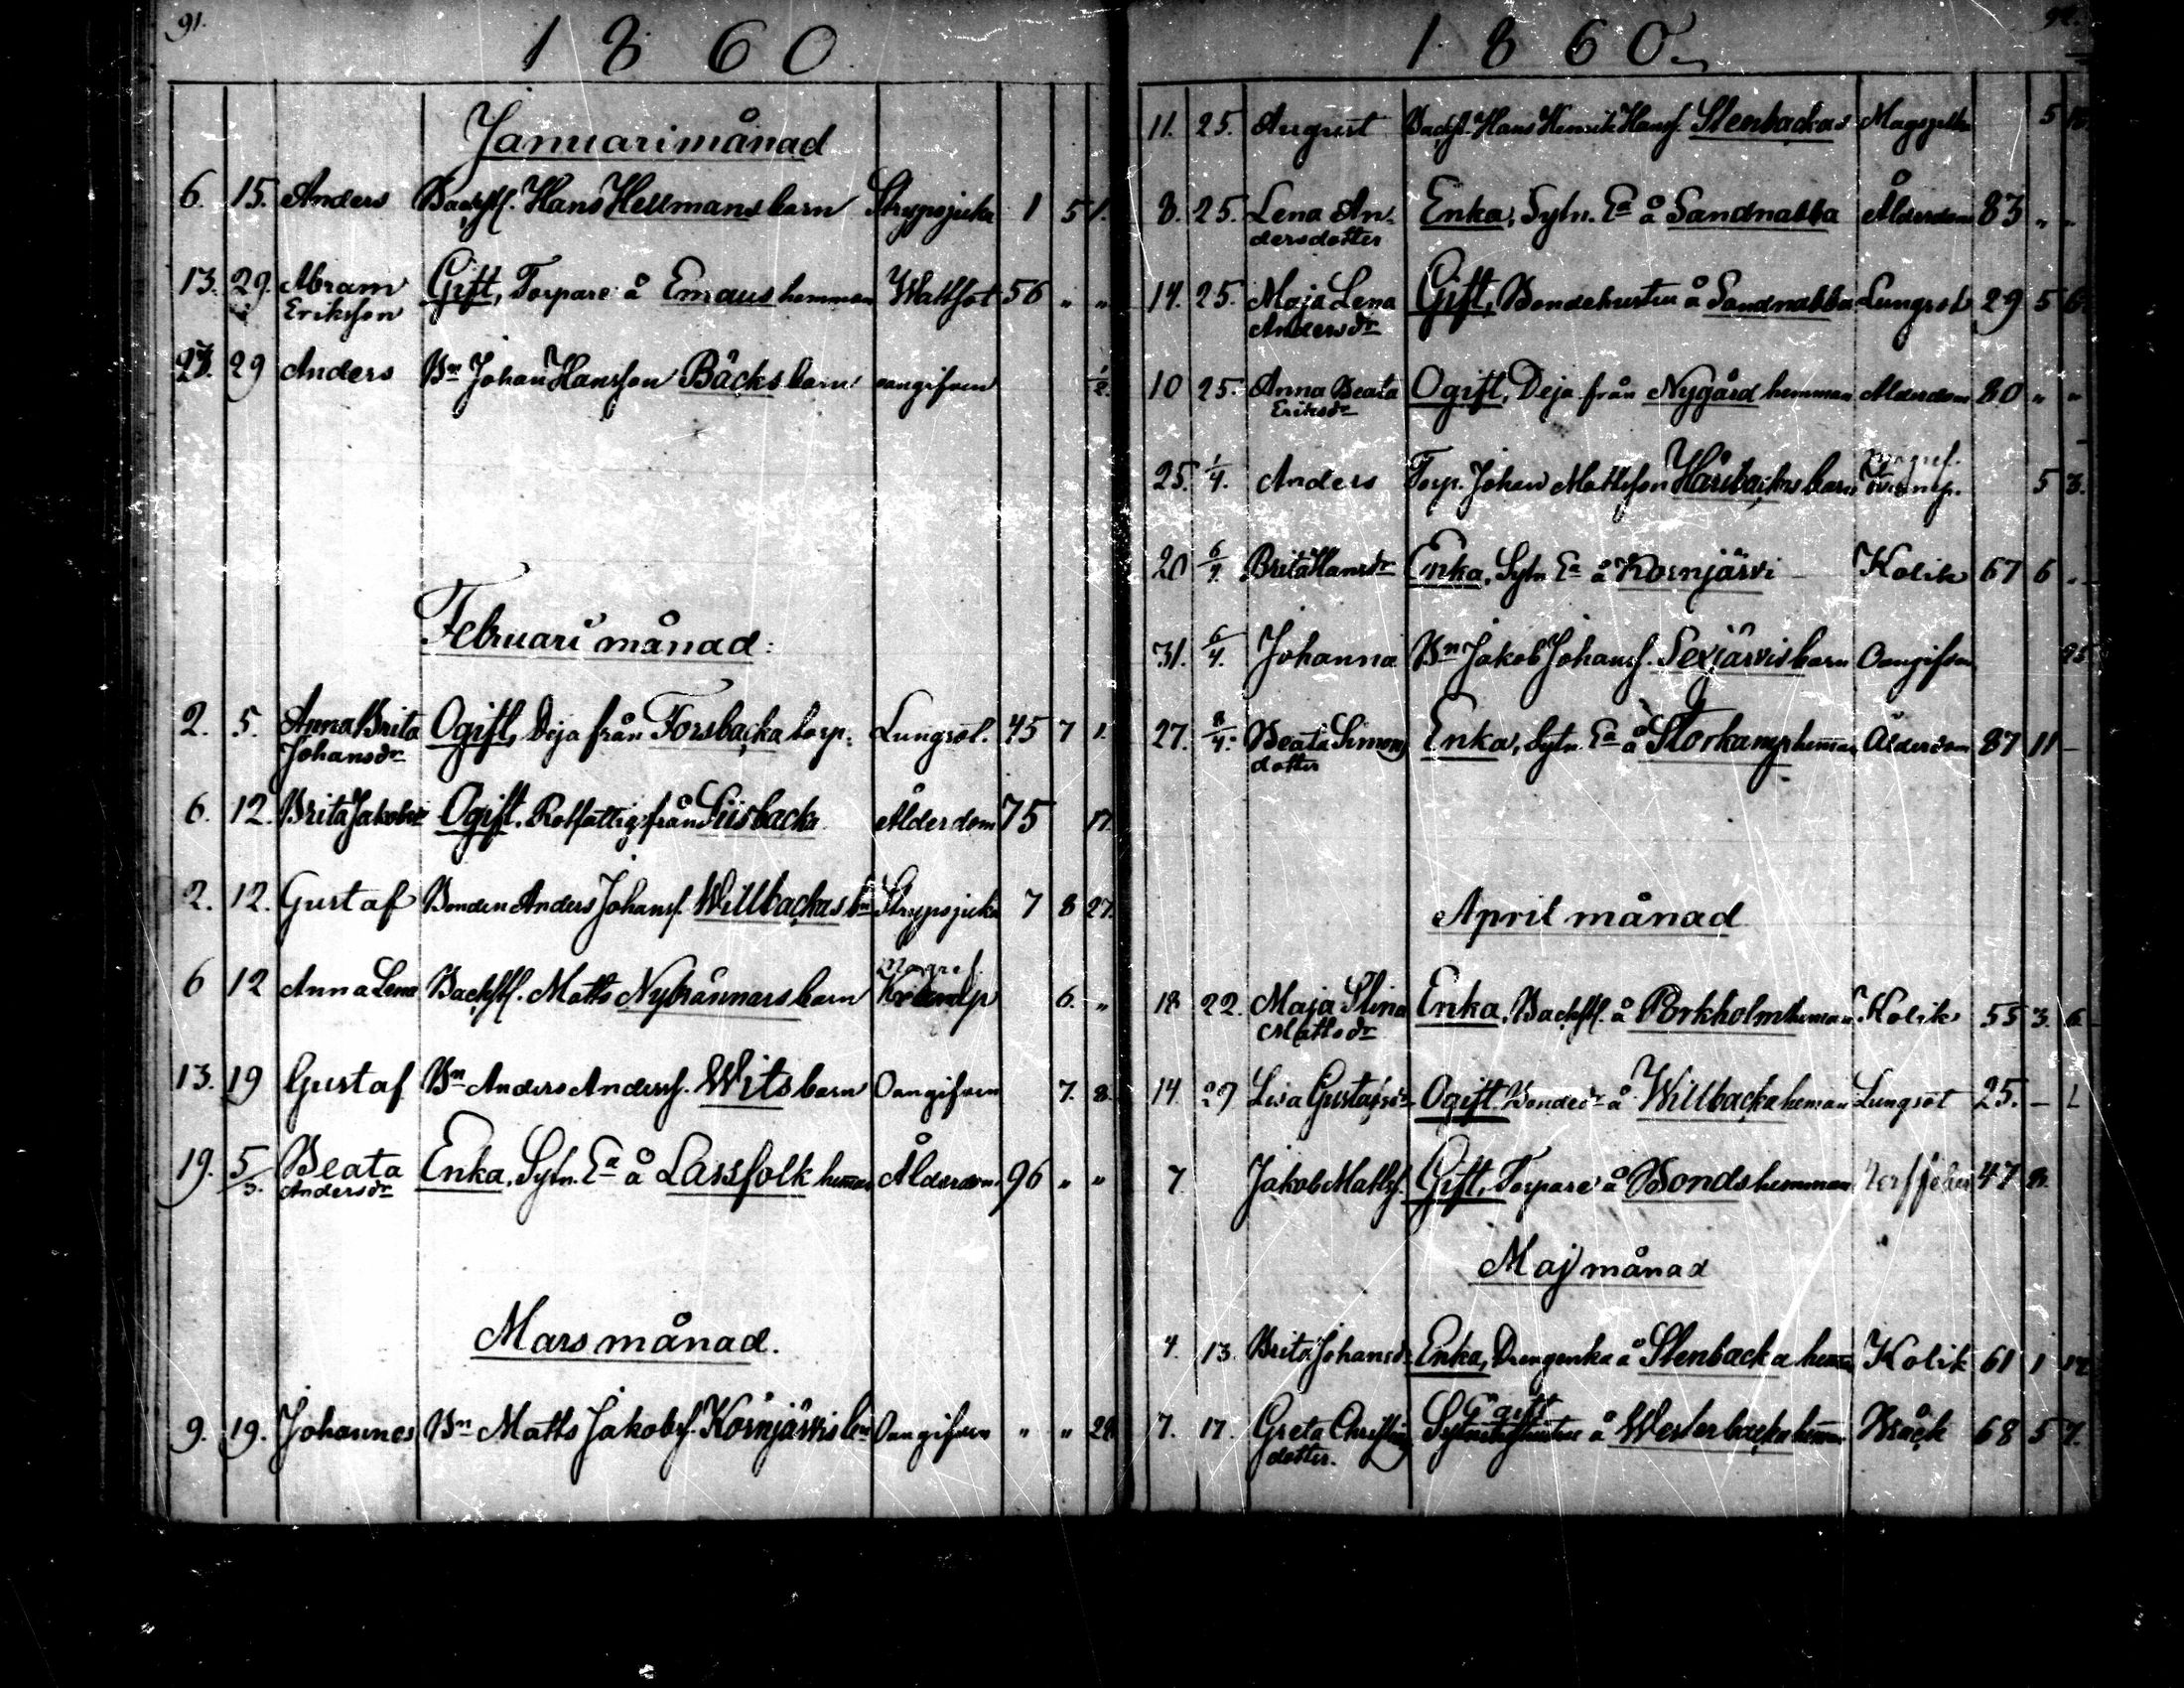 91.
1860
Januarimånad
6. 15. Anders Backst. Hans Hellmans barn Strypsjuka 1 5 1.
13. 29. Abram Gift, Torpare å Emaus hemman Wattsot 56 " "
Eriksson
27. 29 Anders Bn Johan Hansson Bäcks barn oangifven 1/2.
Februari månad:
2. 5. Anna Brita Ogift, Deja från Forsbacka torp. Lungsot. 45 7 1.
Johansdr
6. 12. Brita Jakobsdr Ogift. Rotfattig från Siisbacka Ålderdom 75 17.
2. 12. Gustaf Bonden Anders Johanss. Willbackas bn Strypsjuka 7 8 27.
Magref.
6 12 Anna Lena Backst. Matts Nybrännars barn Kramp 6. "
13. 19 Gustaf Bn Anders Anderss. Wits barn Oangifven 7. 8.
19. 5/3. Beata Enka, Sytn. Ea å Lassfolk hemman Ålderdom 96 " "
Andersdr
Mars månad.
9. 19. Johannes Bn Matts Jakobss. Körnjärvis bn Oangifven " " 24.
1860
11. 25. August Backst. Hans Henrik Hanss. Stenbackas 5
8. 25. Lena An- Enka, Sytn. Ea å Sandnabba Ålderdom 83 " "
dersdotter
14. 25. Maja Lena Gift, Bondehustru å Sandnabba Lungsot 29 5 6.
Andersdr
10 25. Anna Beata Ogift, Deja från Nygård hemman Ålderdom 80 " "
Eriksdr
Magref.
25. 1/4. Anders Torp. Johan Mattsson Hårsbackas barn 5 3.
20 6/4. Brita Hansdr Enka, Sytn Ea å Körnjärvi Kolik 67 6 "
31. 6/4. Johanna Bn Jakob Johanss. Sexjärvis barn Oangifven 25.
27. 8/4. Beata Simons Enka, Sytn. Ea å Storkamp hemman Ålderdom 87 11 –
dotter
April månad
18 22. Maja Stina Enka, Backst. å Porkholm hemman Kolik 55 3. 6.
Mattsdr
14. 29 Lisa Gustafsdr Ogift Bondedr å Willbacka heman Lungsot 25. –
7. Jakob Mattss. Gift, Torpare å Bonds hemman Nerffeber 47 8.
Maj månad
4. 13. Brita Johansdr Enka, Drengenka å Stenbacka hemman Kolik 61 1 14
Gift
7. 17. Greta Christians Sytningshustru å Westerbacka hemman Bråck 68 5 7.
dotter.